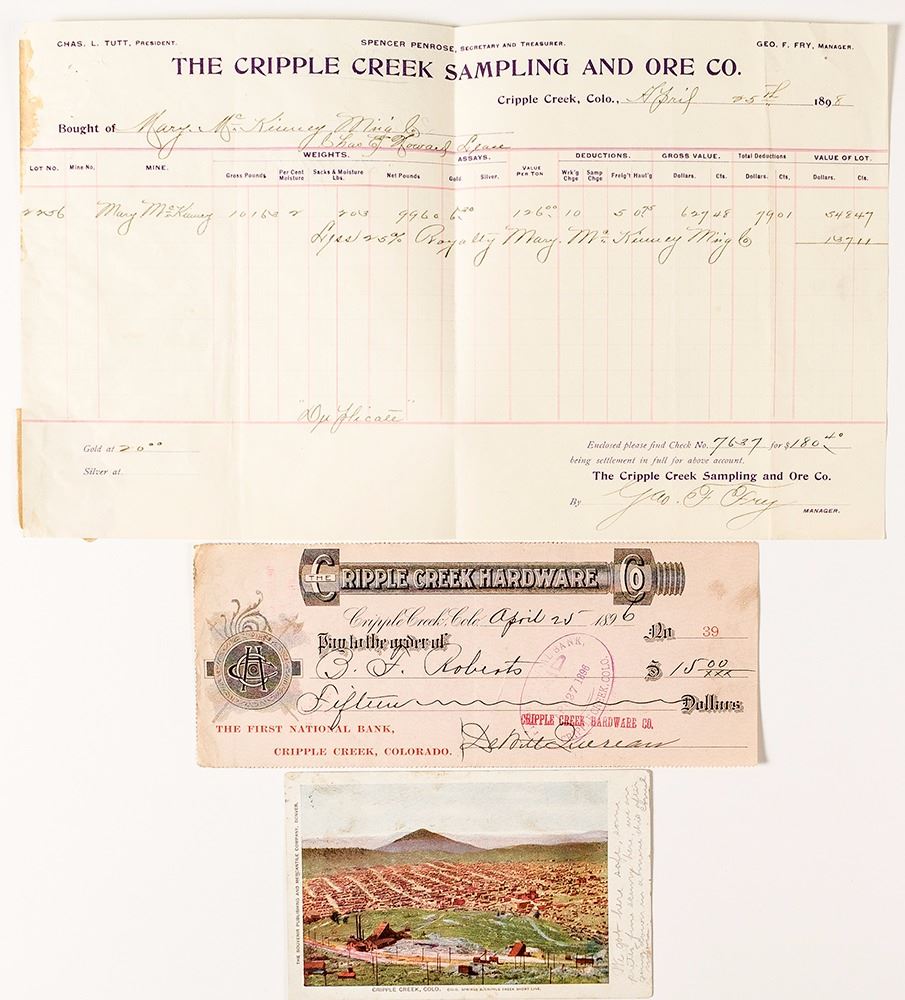 CHAS. L. TUTT, PRESIDENT. SPENCER PENROSE, SECRETARY AND TREASURER. GEO. F. FRY, MANAGER.
THE CRIPPLE CREEK SAMPLING AND ORE CO.
Cripple Creek, Colo., April 25th 1898
Bought of Mary McKinney M'ng Co
Chas T Howard Lease
WEIGHTS. ASSAYS. DEDUCTIONS. GROSS VALUE. Total Deductions VALUE OF LOT.
LOT NO. Mine No. MINE. Gross Pounds Per Cent Moisture Sacks & Moisture Lbs. Net Pounds Gold Silver. VALUE PER TON Wrk'g Chge Samp Chge Freig't Haul'g Dollars. Cts. Dollars. Cts. Dollars. Cts.
2256 Mary McKinney 10163 2 203 9960 6.30 126.00 10 5 0.75 627 48 79 01 548 47
Less 25% Royalty Mary McKinney M'ng Co 137 11
"Duplicate"
Gold at 20.00
Silver at
Enclosed please find Check No. 7637 for $180.40
being settlement in full for above account.
The Cripple Creek Sampling and Ore Co.
By Geo. F. Fry MANAGER.
THE CRIPPLE CREEK HARDWARE CO
Cripple Creek, Colo. April 25 1896
No 39
Pay to the order of
B. F. Roberts $ 15 00/xxx
Fifteen Dollars
BANK,
27 1896
CREEK, COLO.
CRIPPLE CREEK HARDWARE CO.
THE FIRST NATIONAL BANK,
CRIPPLE CREEK, COLORADO.
DeWitt
THE SOUVENIR PUBLISHING AND MERCANTILE COMPANY, DENVER.
CRIPPLE CREEK, COLO. COLO. SPRINGS & CRIPPLE CREEK SHORT LINE.
We got here safe